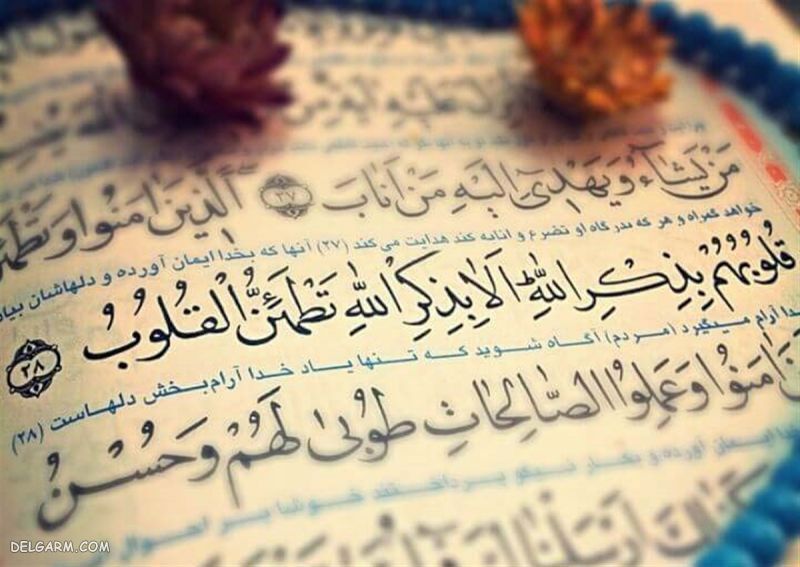 مَنْ يَشَاءُ وَيَهْدِي إِلَيْهِ مَنْ أَنَابَ ﴿٢٧﴾ الَّذِينَ آمَنُوا وَتَطْمَئِنُّ
خواهد گمراه و هر که بدرگاه او تضرع و انابه کند هدایت می کند (۲۷) آنها که بخدا ایمان آورده و دلهاشان بیاد
قُلُوبُهُمْ بِذِكْرِ اللَّهِ أَلَا بِذِكْرِ اللَّهِ تَطْمَئِنُّ الْقُلُوبُ ﴿٢٨﴾
خدا آرام میگیرد (مردم) آگاه شوید که تنها یاد خدا آرام‌بخش دلهاست (۲۸)
آمَنُوا وَعَمِلُوا الصَّالِحَاتِ طُوبَىٰ لَهُمْ وَحُسْنُ
ایمان آورده و بکار نیکو پرداختند خوشا بر احوال
كَذَٰلِكَ أَرْسَلْنَاكَ فِي
DELGARM.COM